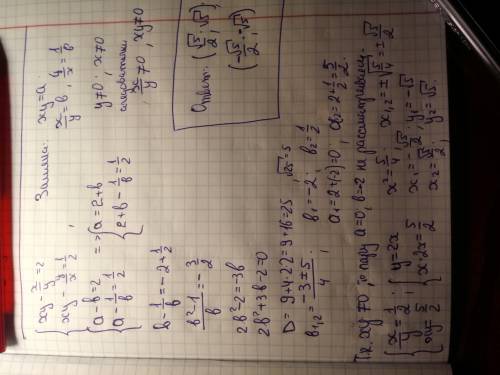 { xy - x/y = 2
{ xy - y/x = 1/2 ,
Замена: xy = a
x/y = b, y/x = 1/b
{ a - b = 2
{ a - 1/b = 1/2
=> { a = 2 + b
{ 2 + b - 1/b = 1/2
y ≠ 0; x ≠ 0
следовательно,
x/y ≠ 0, xy ≠ 0
b - 1/b = -2 + 1/2
(b² - 1)/b = -3/2
2b² - 2 = -3b
2b² + 3b - 2 = 0
D = 9 + 4·2·2 = 9 + 16 = 25, √25 = 5
b₁,₂ = (-3 ± 5)/4; b₁ = -2; b₂ = 1/2
a₁ = 2 + (-2) = 0; a₂ = 2 + 1/2 = 5/2.
Т.к. xy ≠ 0, то пару a = 0, b = -2 не рассматриваем.
{ x/y = 1/2
{ xy = 5/2
; { y = 2x
{ x·2x = 5/2
x² = 5/4; x₁,₂ = ±√(5/4) = ±√5/2
x₁ = -√5/2; y₁ = -√5
x₂ = √5/2; y₂ = √5.
Ответ: (√5/2; √5),
(-√5/2; -√5)